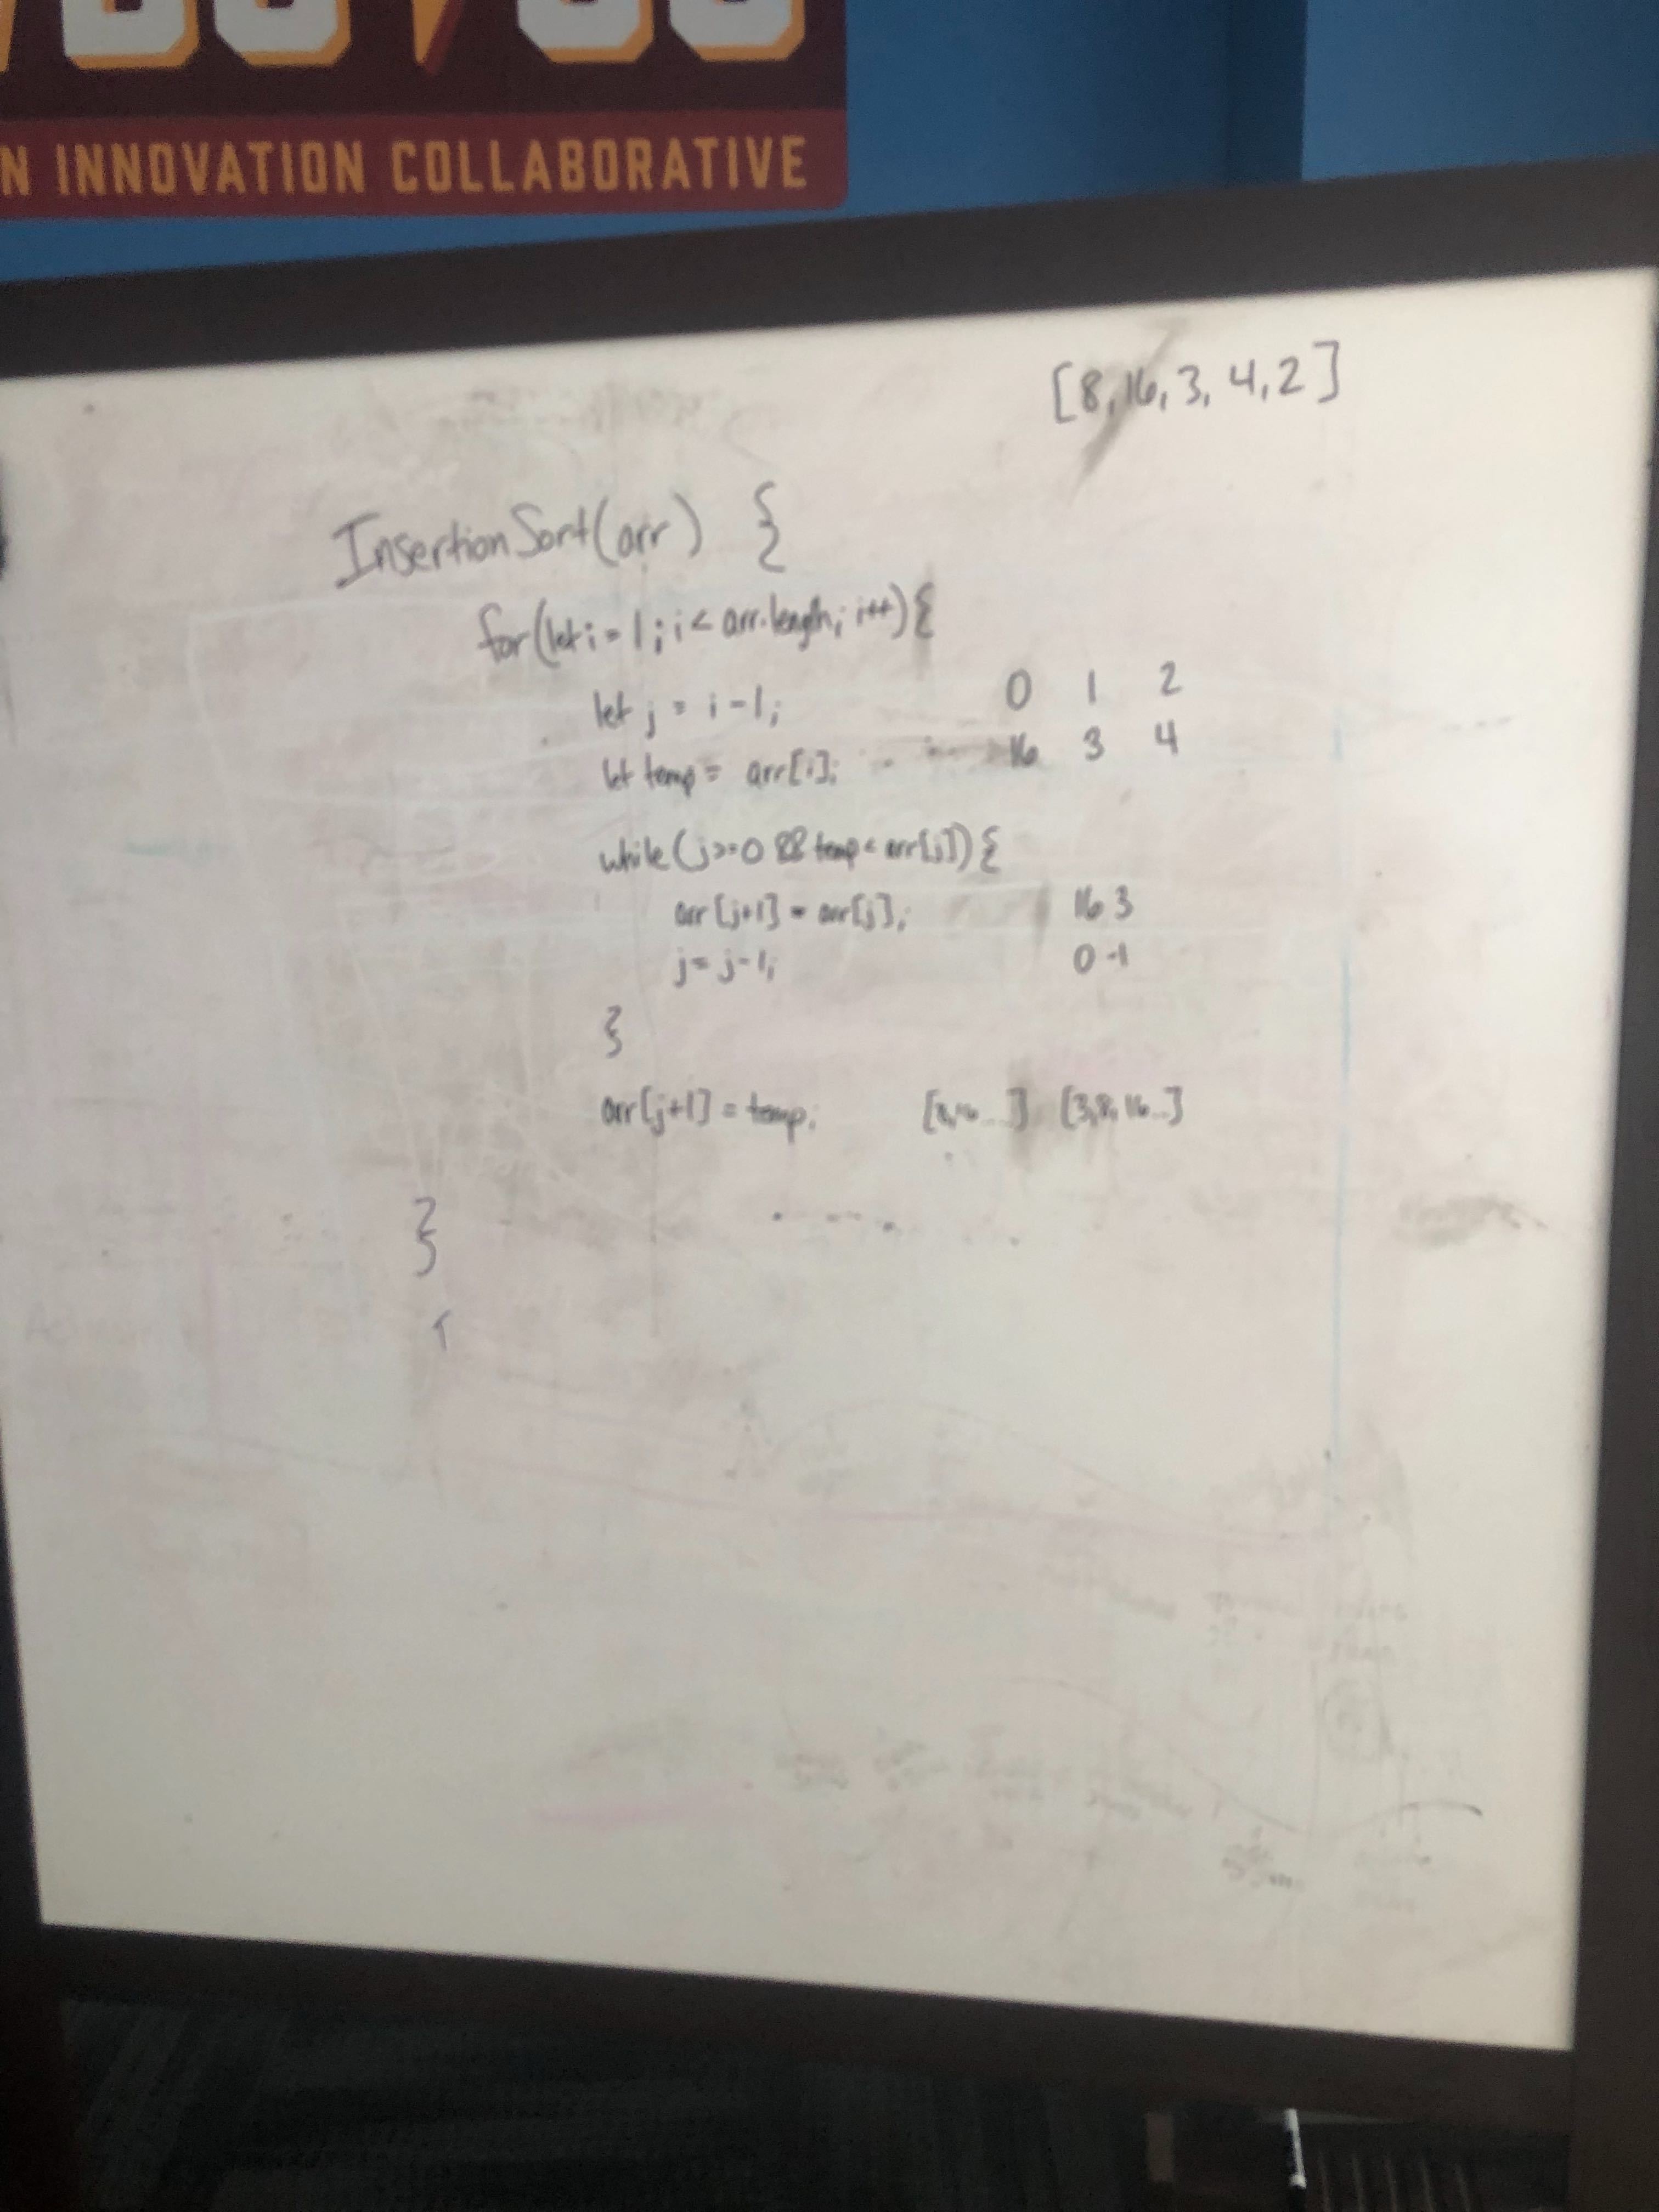 N INNOVATION COLLABORATIVE
[8, 16, 3, 4, 2]
InsertionSort(arr) {
for(let i = 1; i < arr.length; i++) {
let j = i - 1; 0 1 2
let temp = arr[i]; 16 3 4
while (j >= 0 && temp < arr[j]) {
arr[j+1] = arr[j]; 16 3
j = j - 1; 0 -1
}
arr[j+1] = temp; [8,16...] [3,8,16...]
}